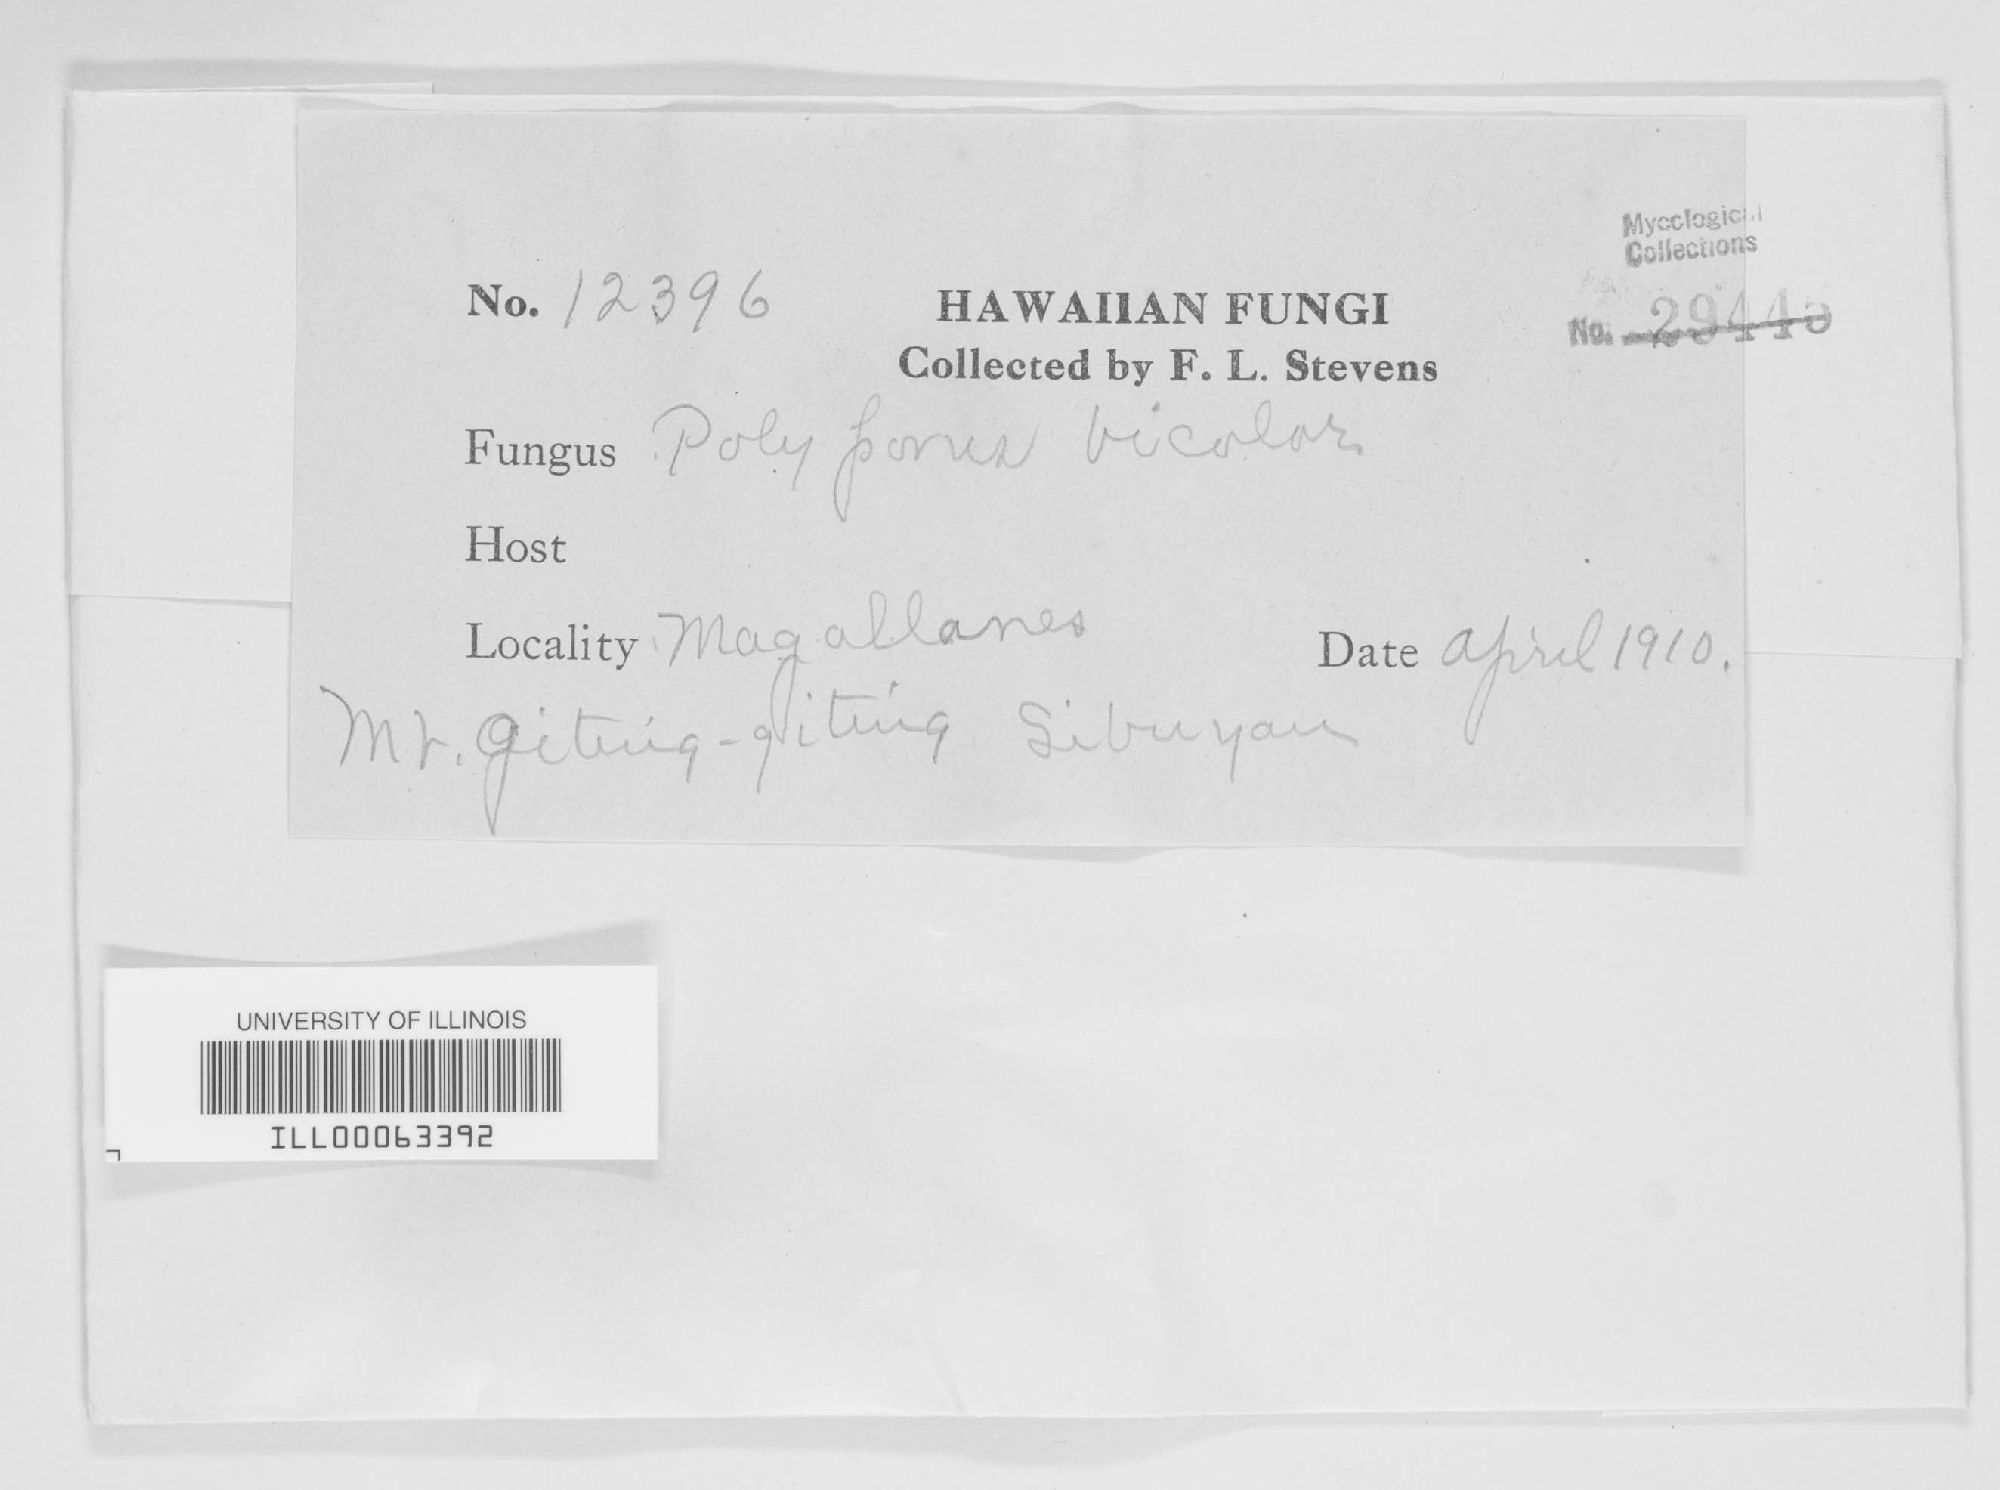 Mycological
Collections
No. 12396
HAWAIIAN FUNGI
No. 29443
Collected by F. L. Stevens
Fungus Polyporus bicolor
Host
Locality Magallanes
Date April 1910.
Mt. Giting-giting Sibuyan
UNIVERSITY OF ILLINOIS
ILL00063392